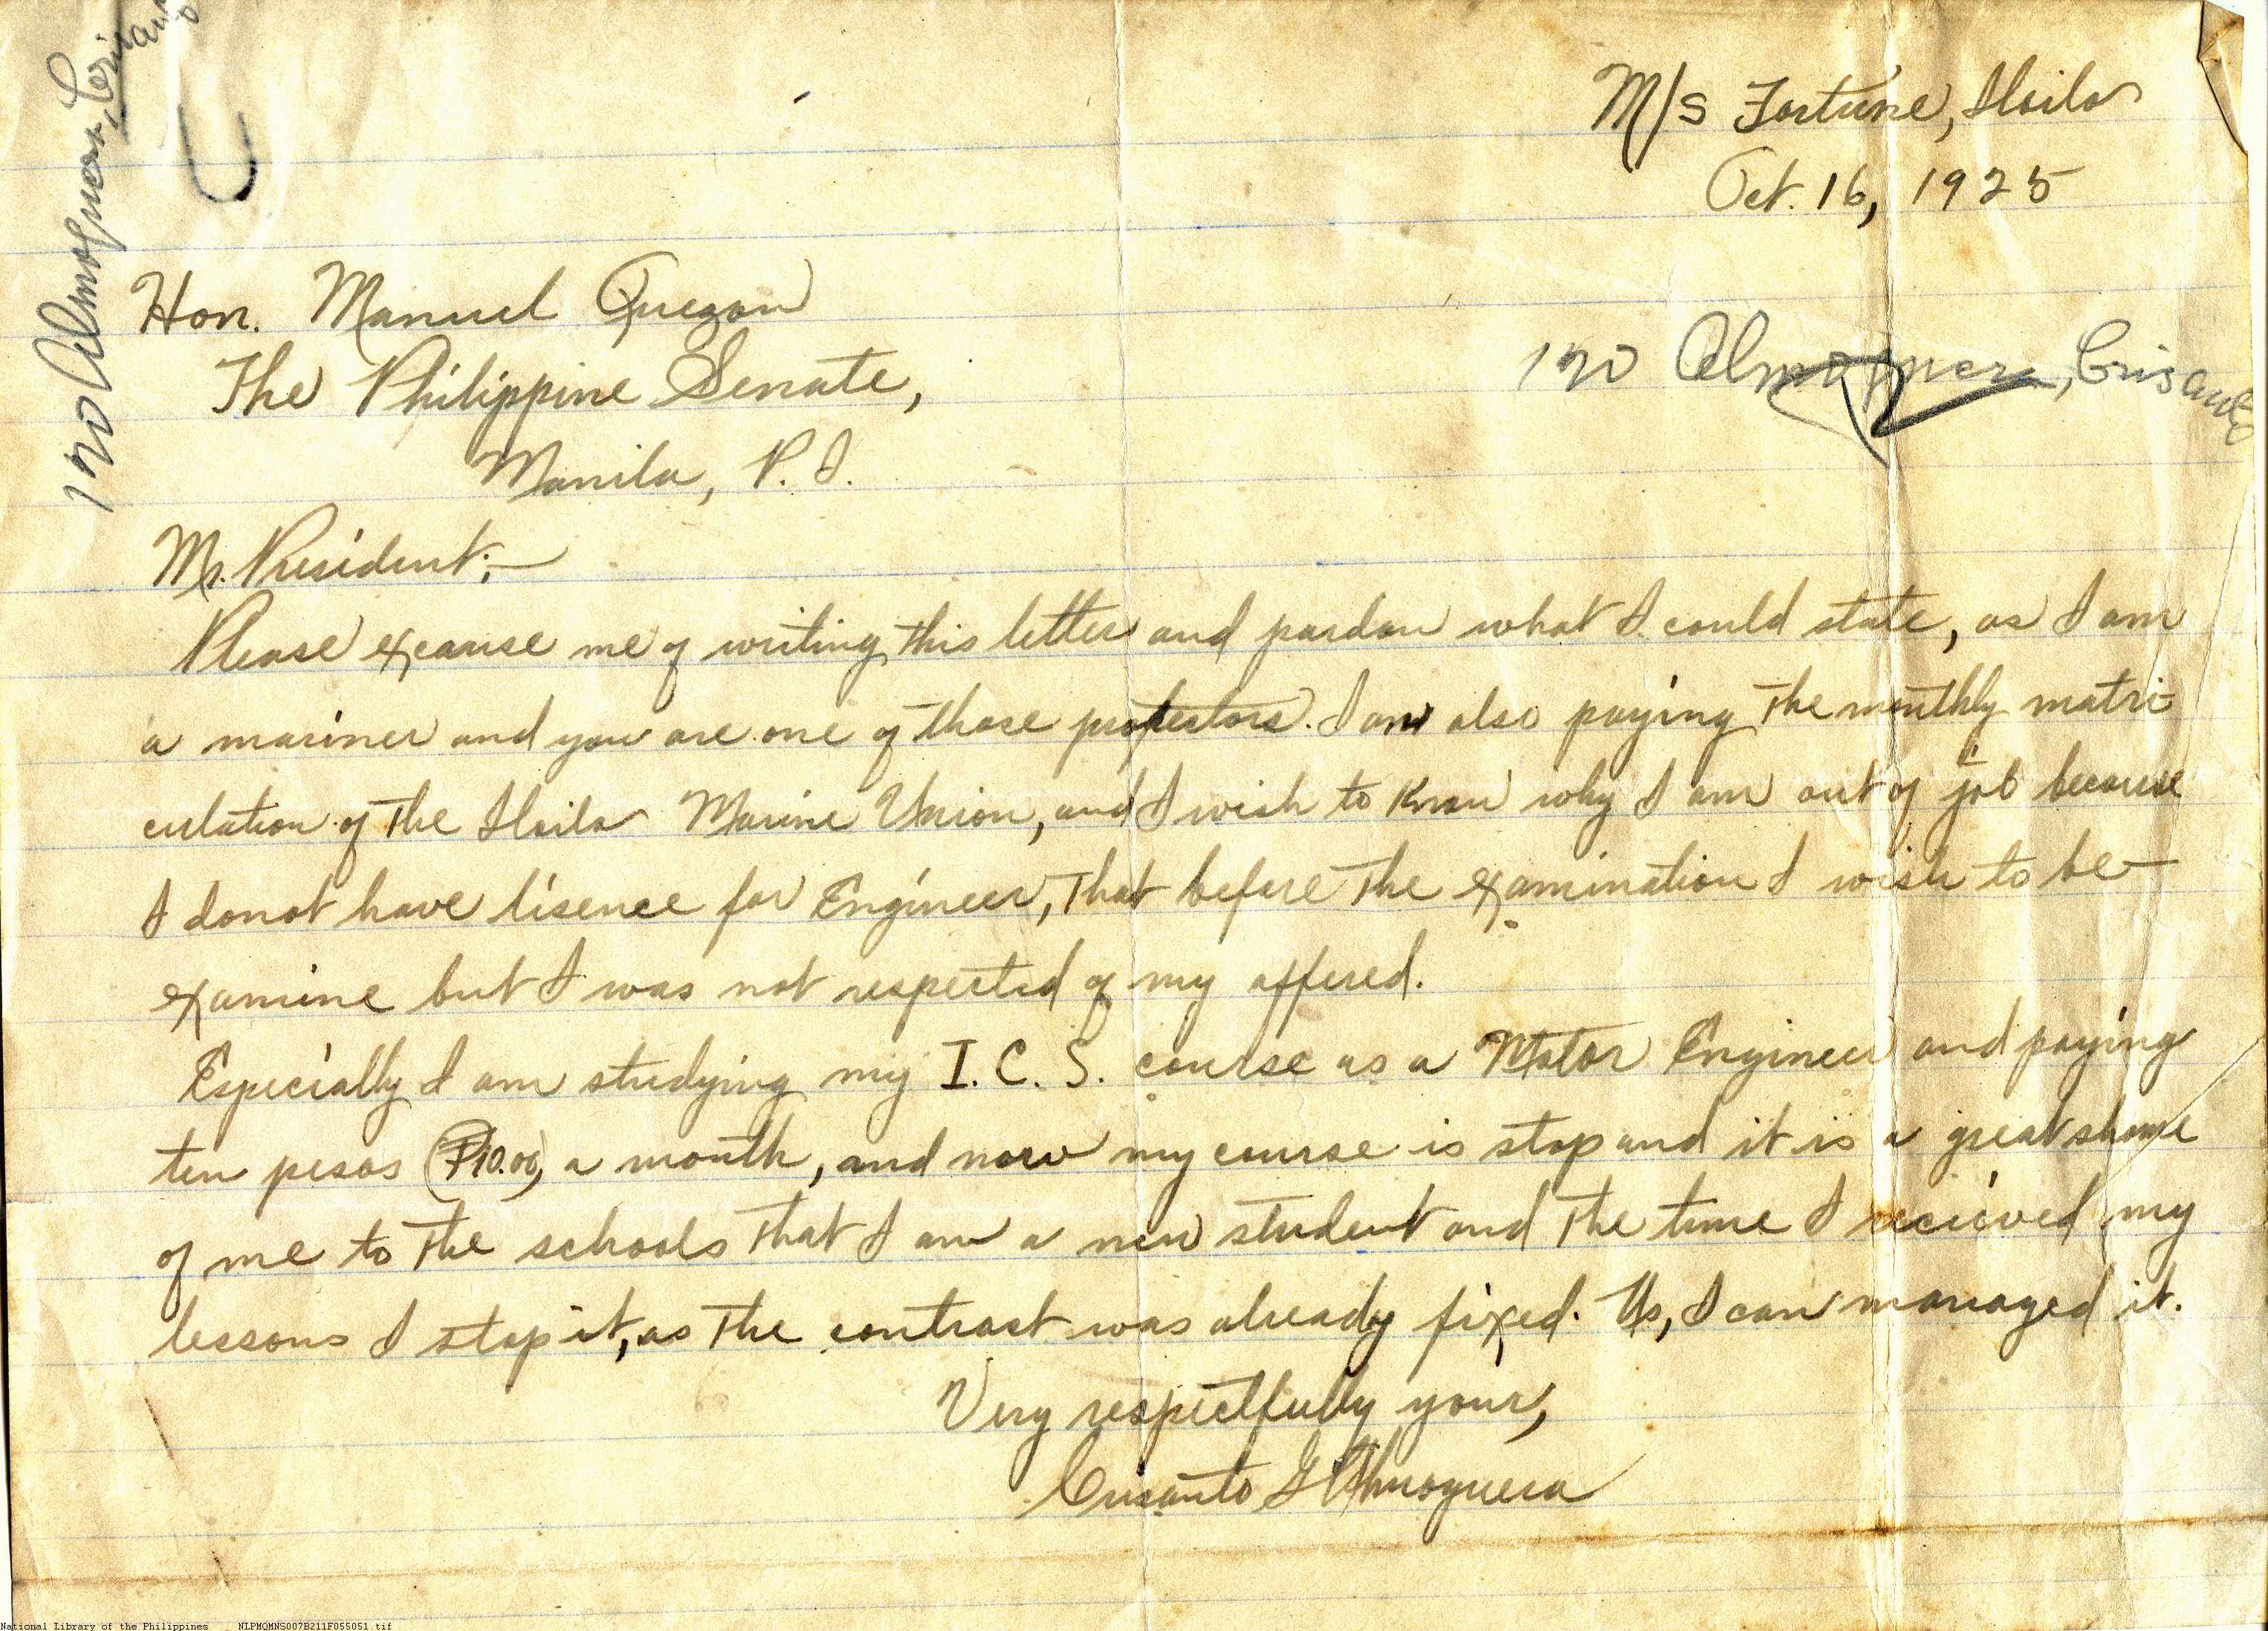 M/S Fortune, Iloilo
Oct. 16, 1925
120 Almoguera, Crisanto
Hon. Manuel Quezon
The Philippine Senate,
Manila, P. I.
120 Almoguera, Crisanto
Mr. President;—
Please excause me of writing this letter and pardon what I could state, as I am
a mariner and you are one of those protectors. I am also paying the monthly matri-
culation of the Iloilo Marine Union, and I wish to know why I am out of job because
I donot have lisence for Engineer, that before the examination I wish to be
examine but I was not respected of my offered.
Especially I am studying my I. C. S. course as a Motor Engineer and paying
ten pesos (₱10.00) a month, and now my course is stop and it is a great shame
of me to the schools that I am a new student and the time I recieved my
lessons I stop it, as the contract was already fixed. I can managed it.
Very respectfully your,
Crisanto G Almoguera
National Library of the Philippines NLPMQMNS007B211F055051.tif